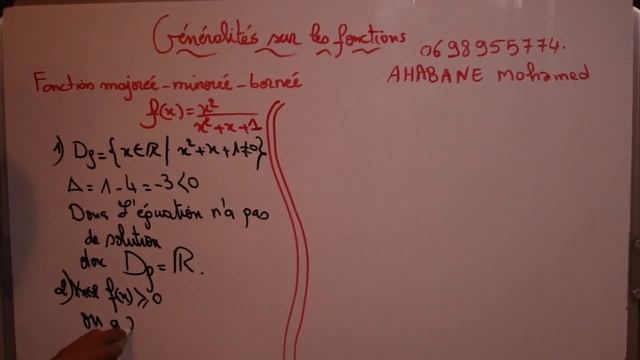 Généralités sur les fonctions
0698955774.
AHABANE Mohamed
Fonction majorée - minorée - bornée
f(x) = x²/(x²+x+1)
1) Df = {x∈ℝ / x²+x+1≠0}
Δ = 1-4 = -3 < 0
Dons L'équation n'a pas
de solution
doc Df = ℝ.
2) ∀x∈ℝ f(x) ⩾ 0
on a